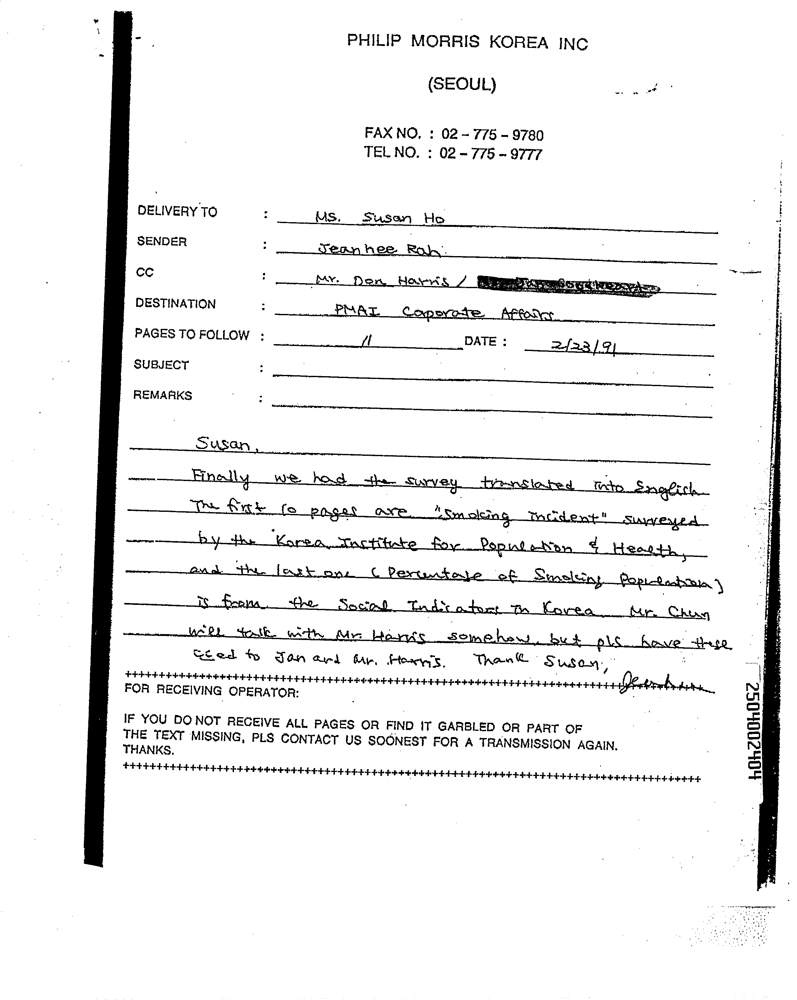 PHILIP MORRIS KOREA INC
(SEOUL)
FAX NO. : 02 - 775 - 9780
TEL NO. : 02 - 775 - 9777
DELIVERY TO : Ms. Susan Ho
SENDER : Jeanhee Rah
CC : Mr. Don Harris /
DESTINATION : PMAI Coporate Affairs
PAGES TO FOLLOW : 11 DATE : 2/23/91
SUBJECT :
REMARKS :
Susan,
Finally we had the survey translated into English
The first 10 pages are "Smoking Incident" surveyed
by the Korea Institute for Population & Health,
and the last one (Percentage of Smoking Population)
is from the Social Indicators in Korea. Mr. Chun
will talk with Mr. Harris somehow, but pls have these
cced to Jan and Mr. Harris. Thank Susan,
+++++++++++++++++++++++++++++++++++++++++++++++++++++++++++++++
FOR RECEIVING OPERATOR:
IF YOU DO NOT RECEIVE ALL PAGES OR FIND IT GARBLED OR PART OF
THE TEXT MISSING, PLS CONTACT US SOONEST FOR A TRANSMISSION AGAIN.
THANKS.
+++++++++++++++++++++++++++++++++++++++++++++++++++++++++++++++
2504002404